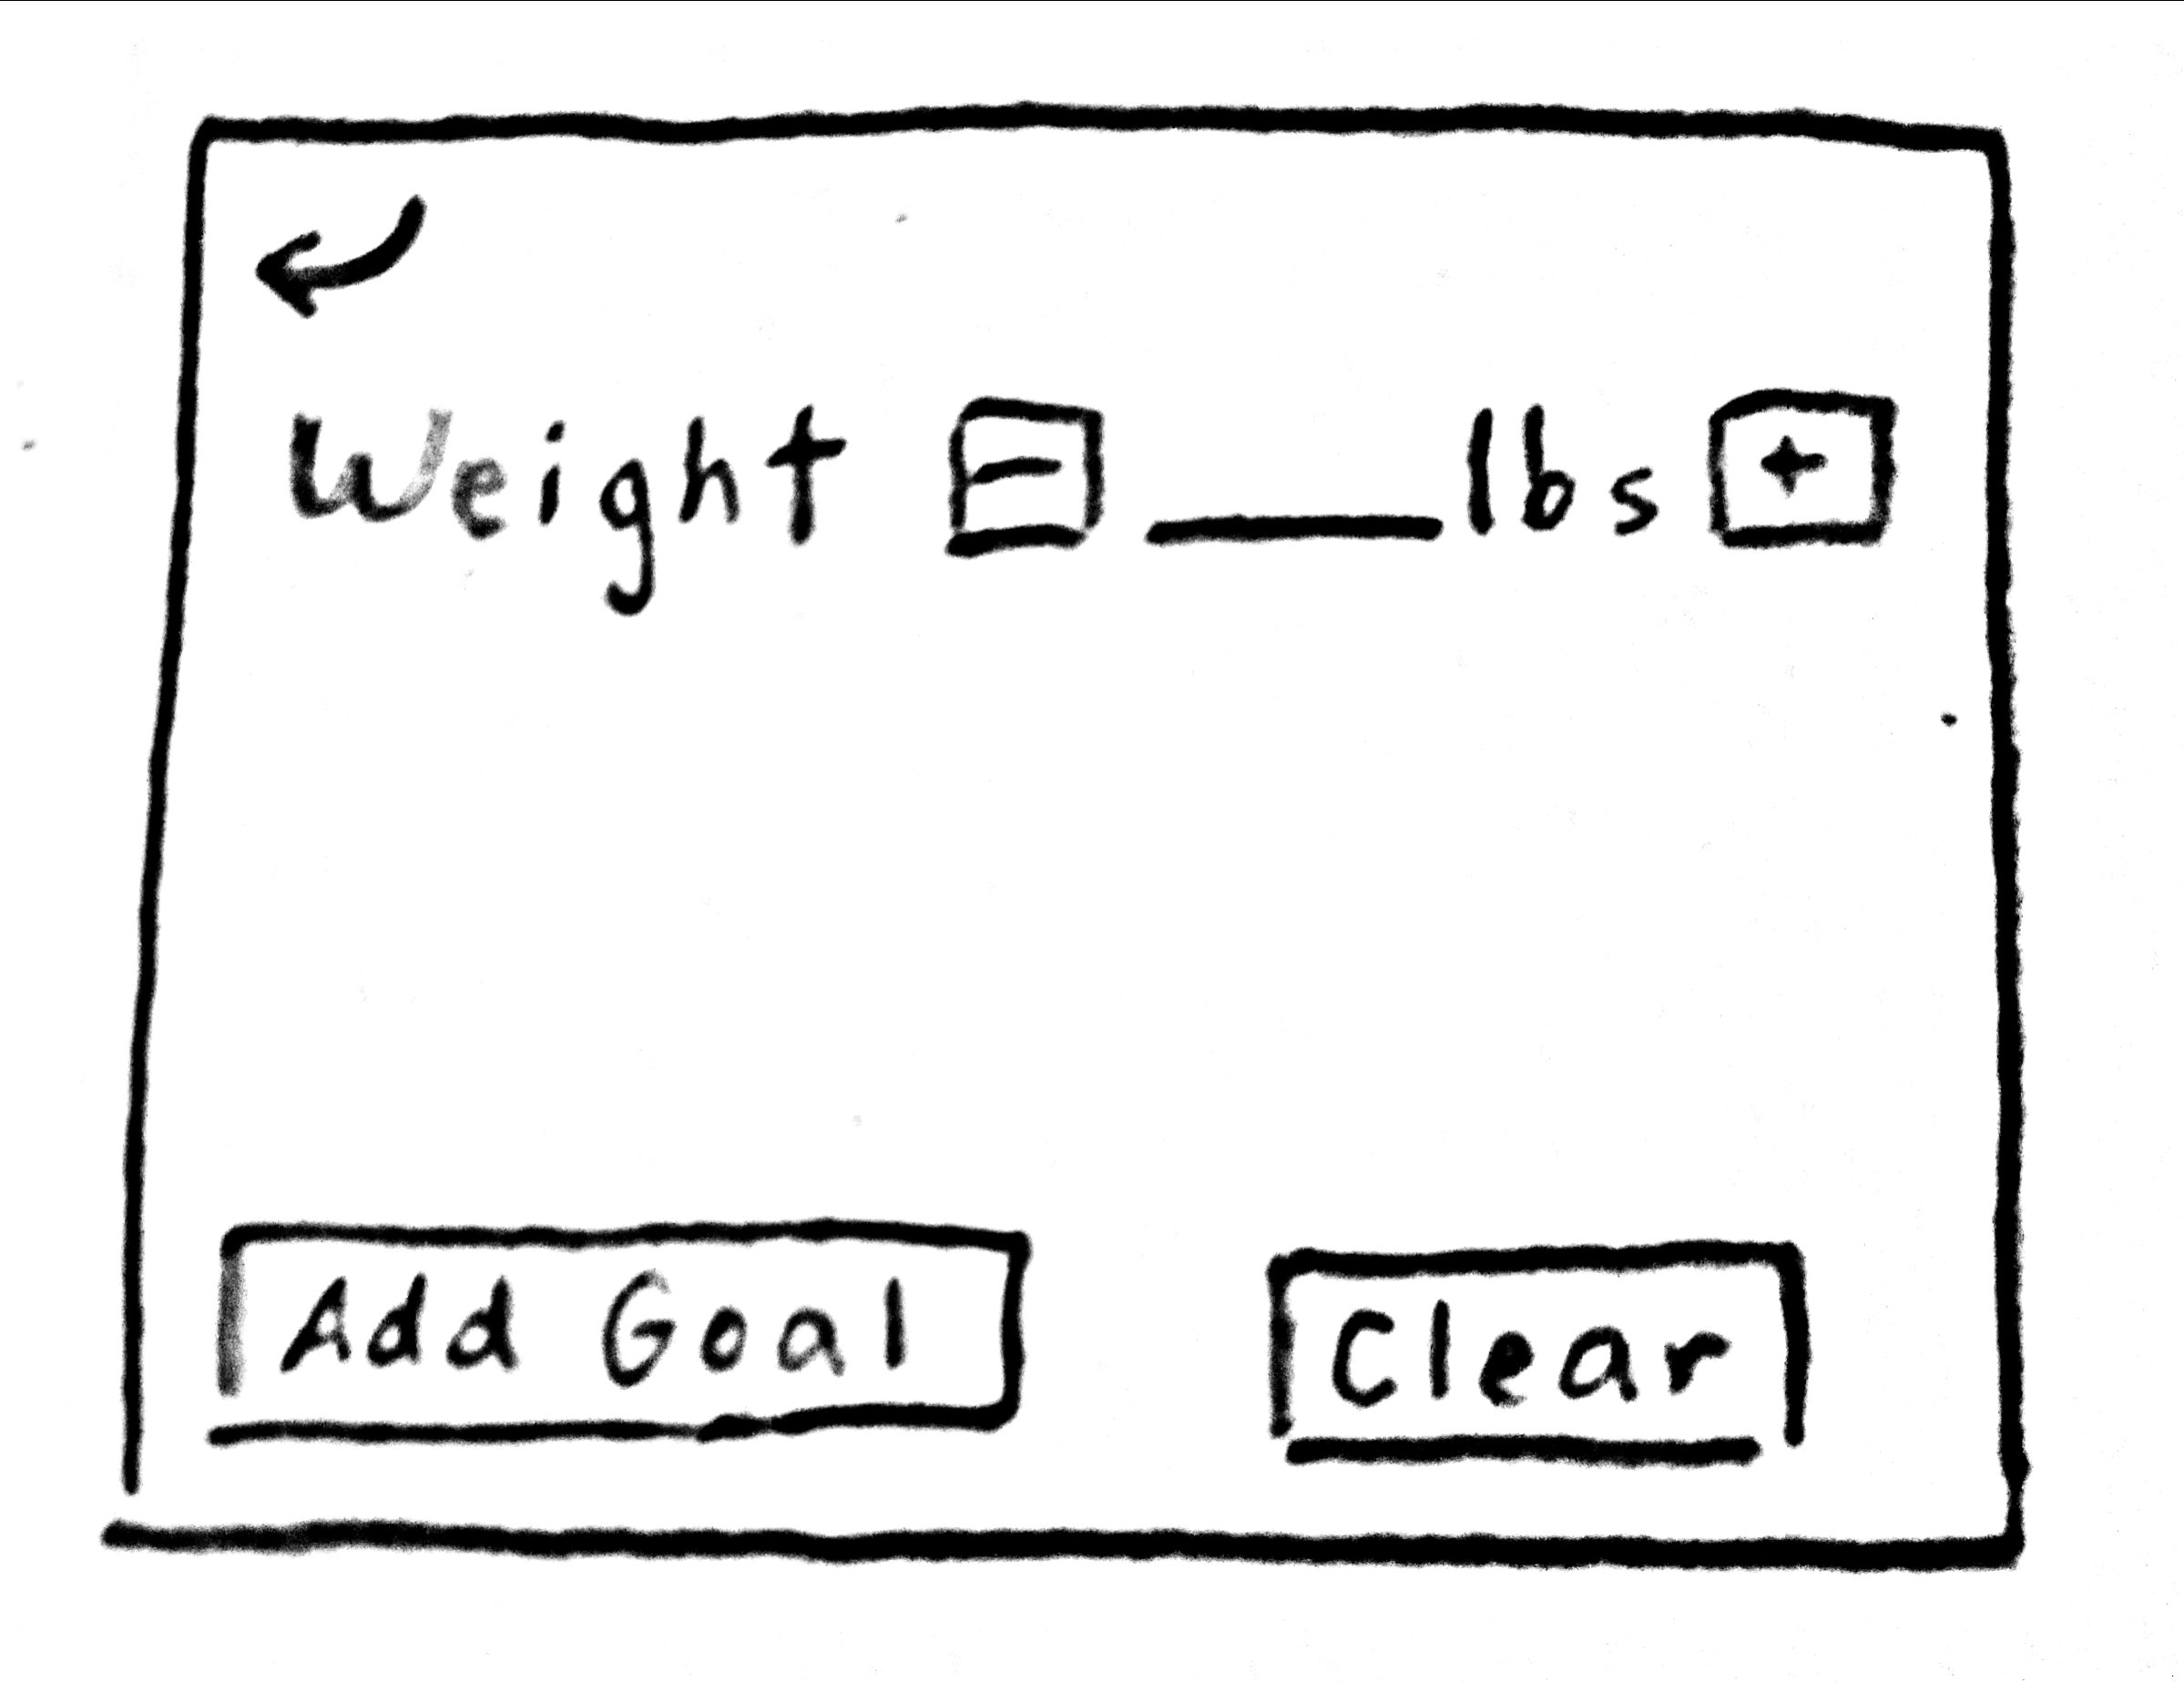 Weight - ___ lbs +
Add Goal
Clear